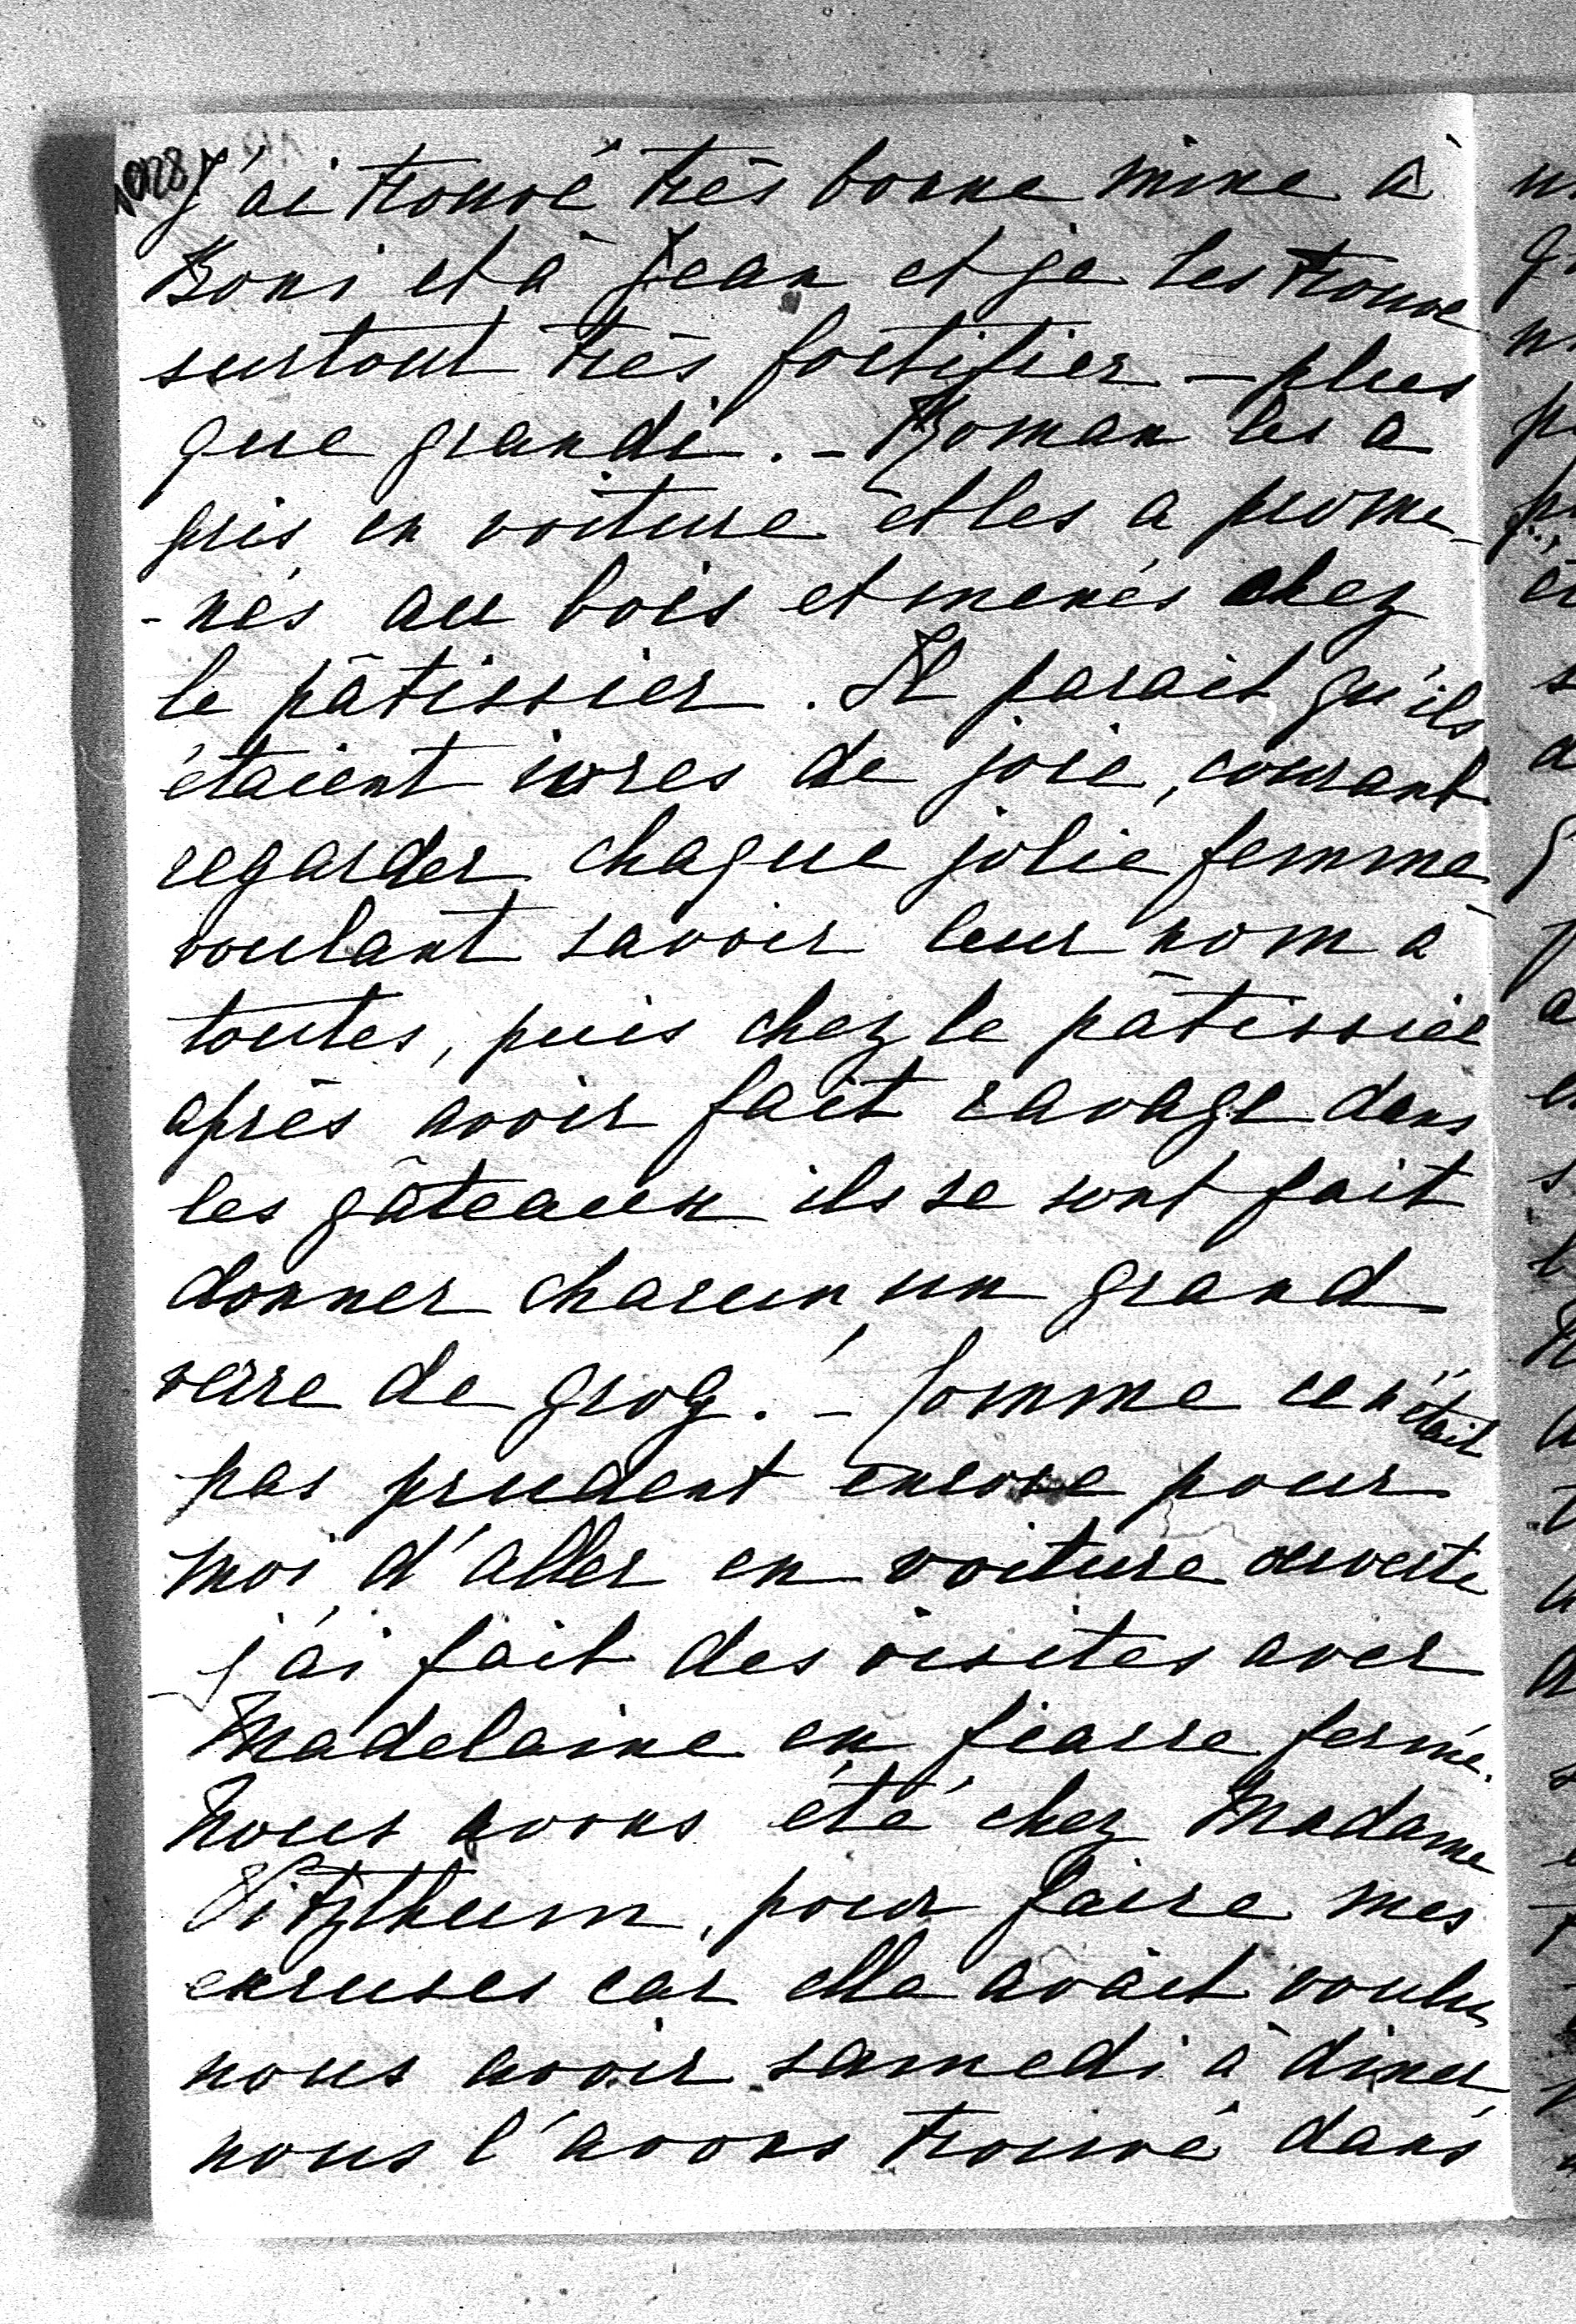 J'ai trouvé très bonne mine à
Boni et à Jean et je les trouve
surtout très fortifier – plus
que grandi. – Roman les a
pris en voiture et les a prome-
-nés au bois et menés chez
le pâtissier. Il parait qu'ils
étaient ivres de joie, courant
regarder chaque jolie femme
voulant savoir leur nom à
toutes, puis chez le pâtissier
après avoir fait ravage dans
les gâteaux ils se sont fait
donner chacun un grand
verre de grog. – Comme ce n'était
pas prudent encore pour
moi d'aller en voiture ouverte
j'ai fait des visites avec
Madelaine en fiacre fermé.
Nous avons été chez Madame
Vitzthum, pour faire mes
excuses car elle avait voulu
nous avoir samedi à diner,
nous l'avons trouvé dans